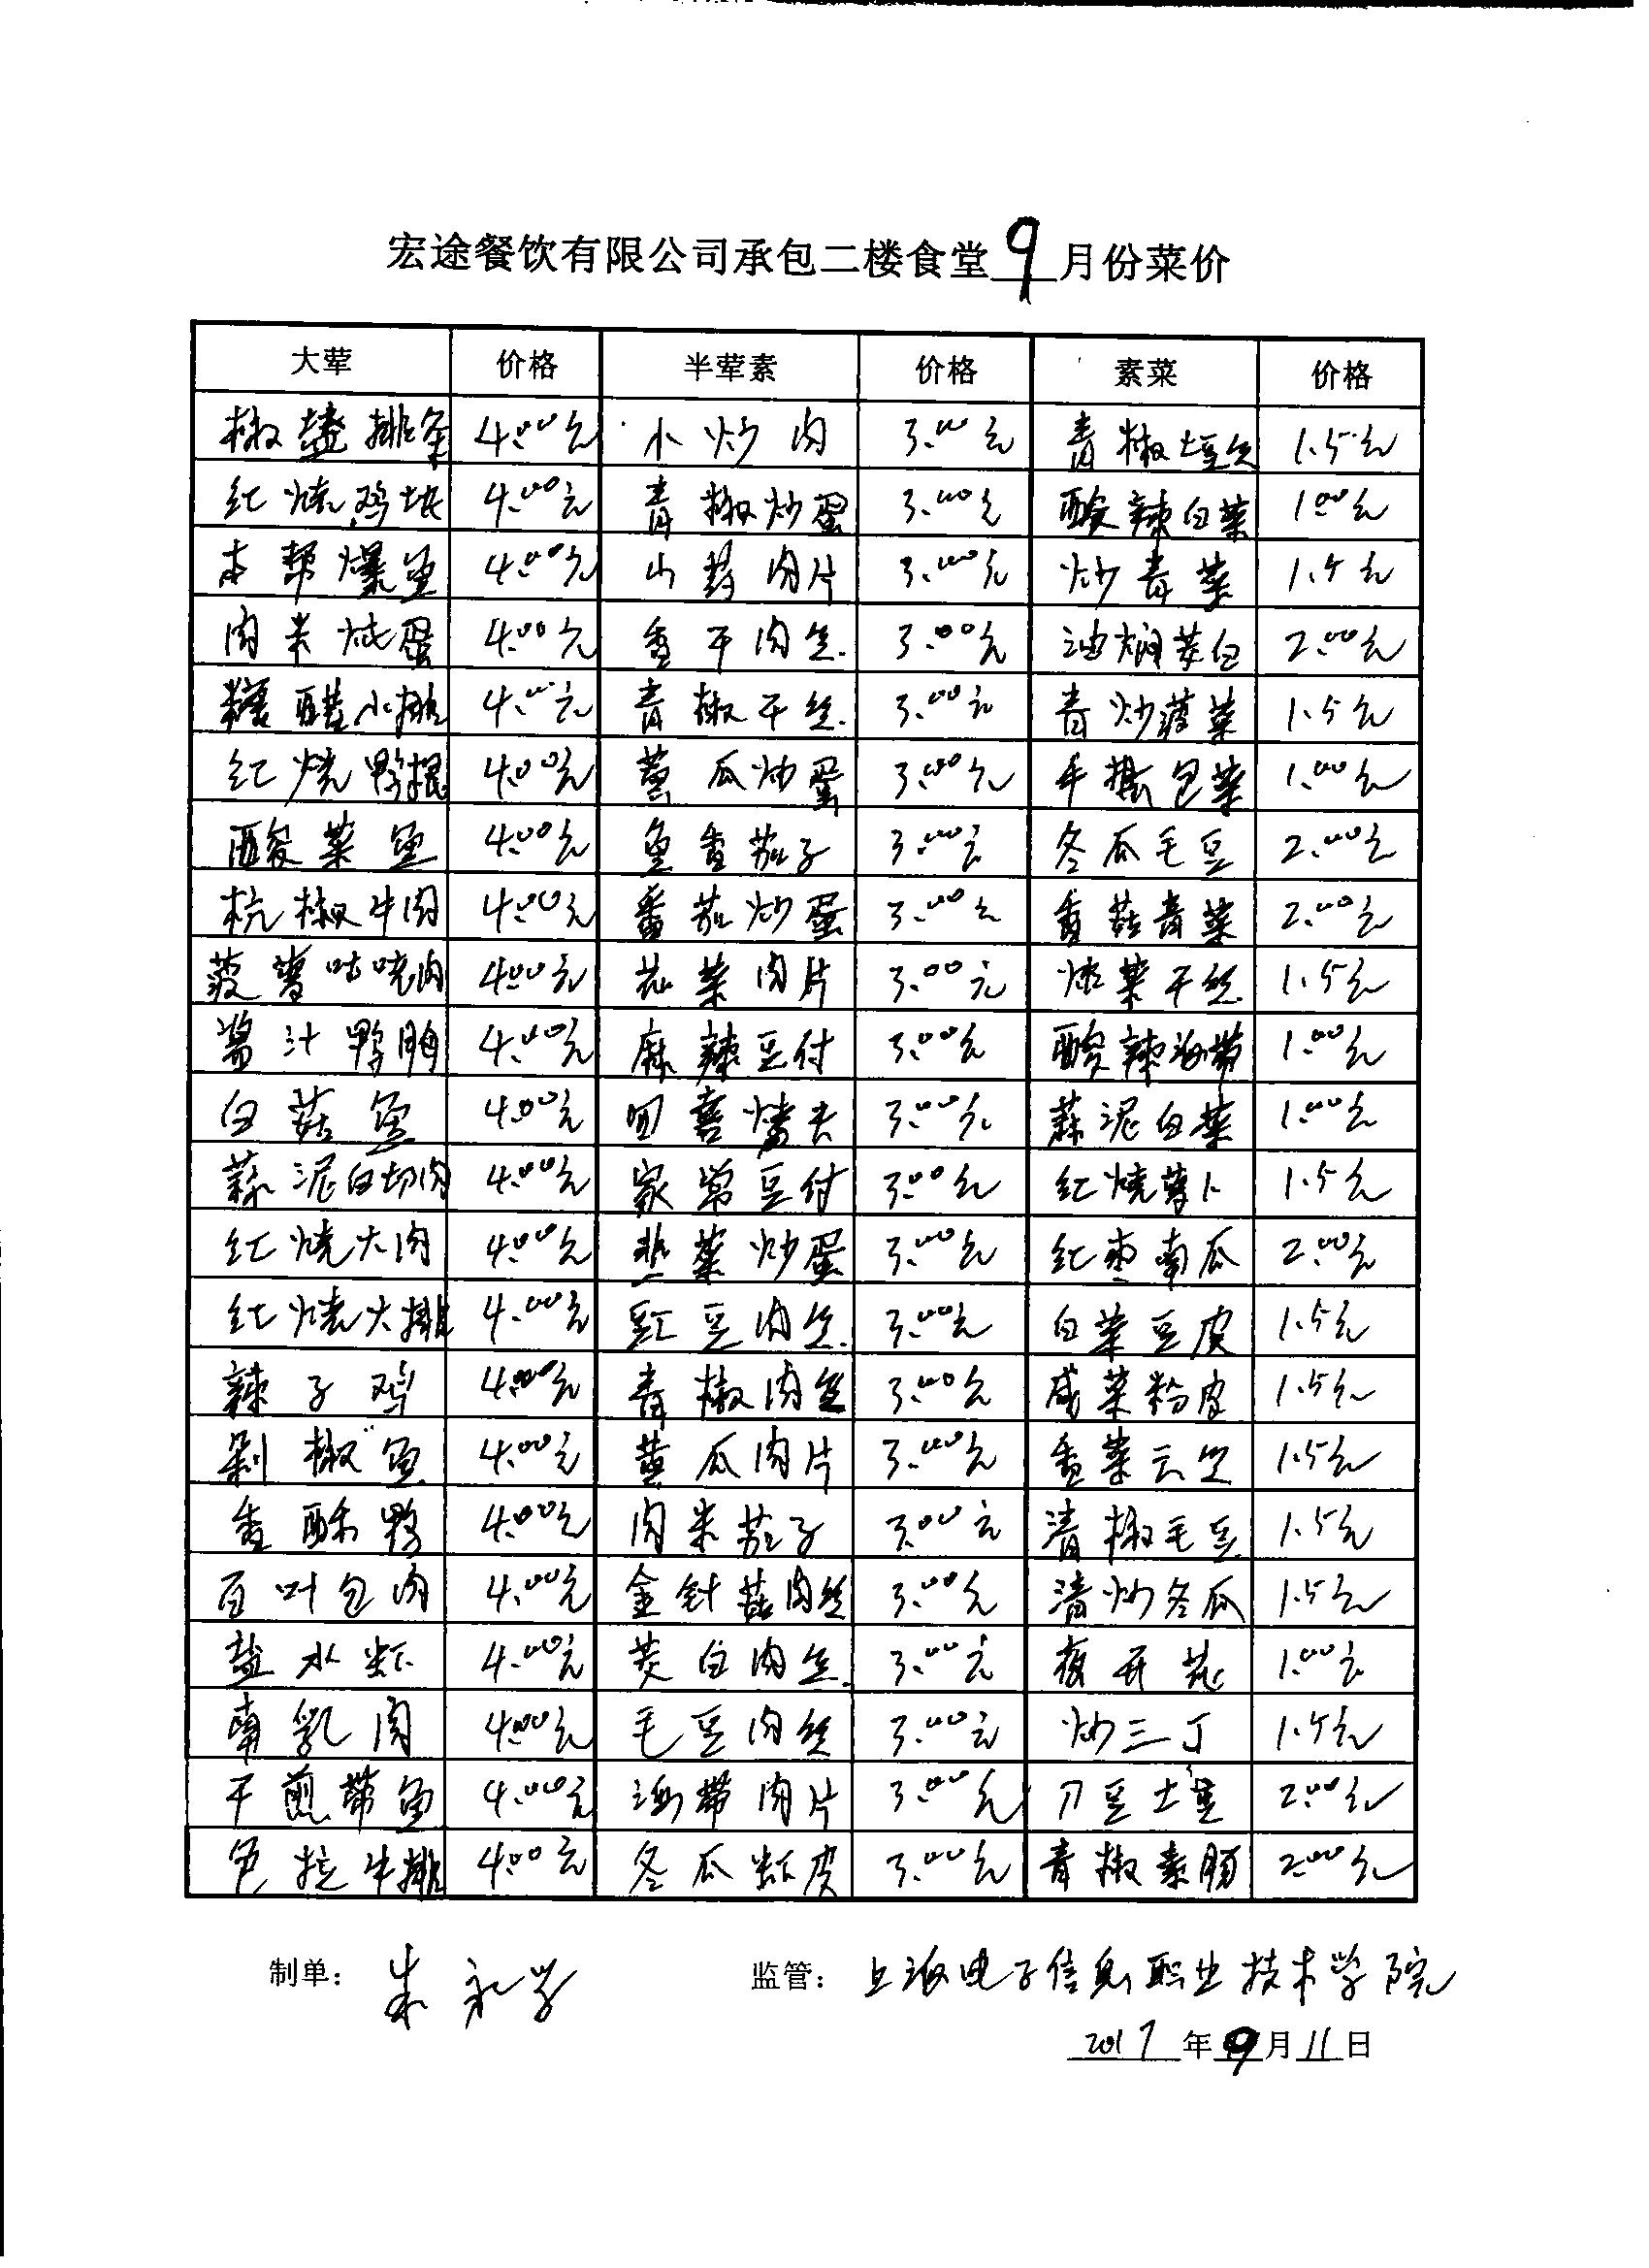 宏途餐饮有限公司承包二楼食堂9月份菜价
大荤 价格 半荤素 价格 素菜 价格
椒盐排条 4.00元 小炒肉 3.00元 青椒土豆丝 1.5元
红烧鸡块 4.00元 青椒炒蛋 3.00元 酸辣白菜 1.00元
本帮爆鱼 4.00元 山药肉片 3.00元 炒青菜 1.5元
肉米炖蛋 4.00元 香干肉丝 3.00元 油焖茭白 2.00元
糖醋小排 4.00元 青椒干丝 3.00元 青炒菠菜 1.5元
红烧鸭腿 4.00元 黄瓜炒蛋 3.00元 手撕包菜 1.00元
酸菜鱼 4.00元 鱼香茄子 3.00元 冬瓜毛豆 2.00元
杭椒牛肉 4.00元 番茄炒蛋 3.00元 香菇青菜 2.00元
菠萝咕咾肉 4.00元 花菜肉片 3.00元 干丝 1.5元
酱汁鸭胸 4.00元 麻辣豆付 3.00元 酸辣海带 1.00元
白菇鱼 4.00元 四喜烤夫 3.00元 蒜泥白菜 1.00元
蒜泥白切肉 4.00元 家常豆付 3.00元 红烧萝卜 1.5元
红烧大肉 4.00元 韭菜炒蛋 3.00元 红枣南瓜 2.00元
红烧大排 4.00元 豇豆肉丝 3.00元 白菜豆皮 1.5元
辣子鸡 4.00元 青椒肉丝 3.00元 咸菜粉皮 1.5元
剁椒鱼 4.00元 黄瓜肉片 3.00元 香菜云丝 1.5元
香酥鸭 4.00元 肉米茄子 3.00元 清椒毛豆 1.5元
百叶包肉 4.00元 金针菇肉丝 3.00元 清炒冬瓜 1.5元
盐水虾 4.00元 茭白肉丝 3.00元 1.00元
南乳肉 4.00元 毛豆肉丝 3.00元 炒三丁 1.5元
干煎带鱼 4.00元 海带肉片 3.00元 刀豆土豆 2.00元
色拉牛排 4.00元 冬瓜虾皮 3.00元 青椒素肠 2.00元
制单： 朱永学 监管： 上海电子信息职业技术学院
2017年9月11日